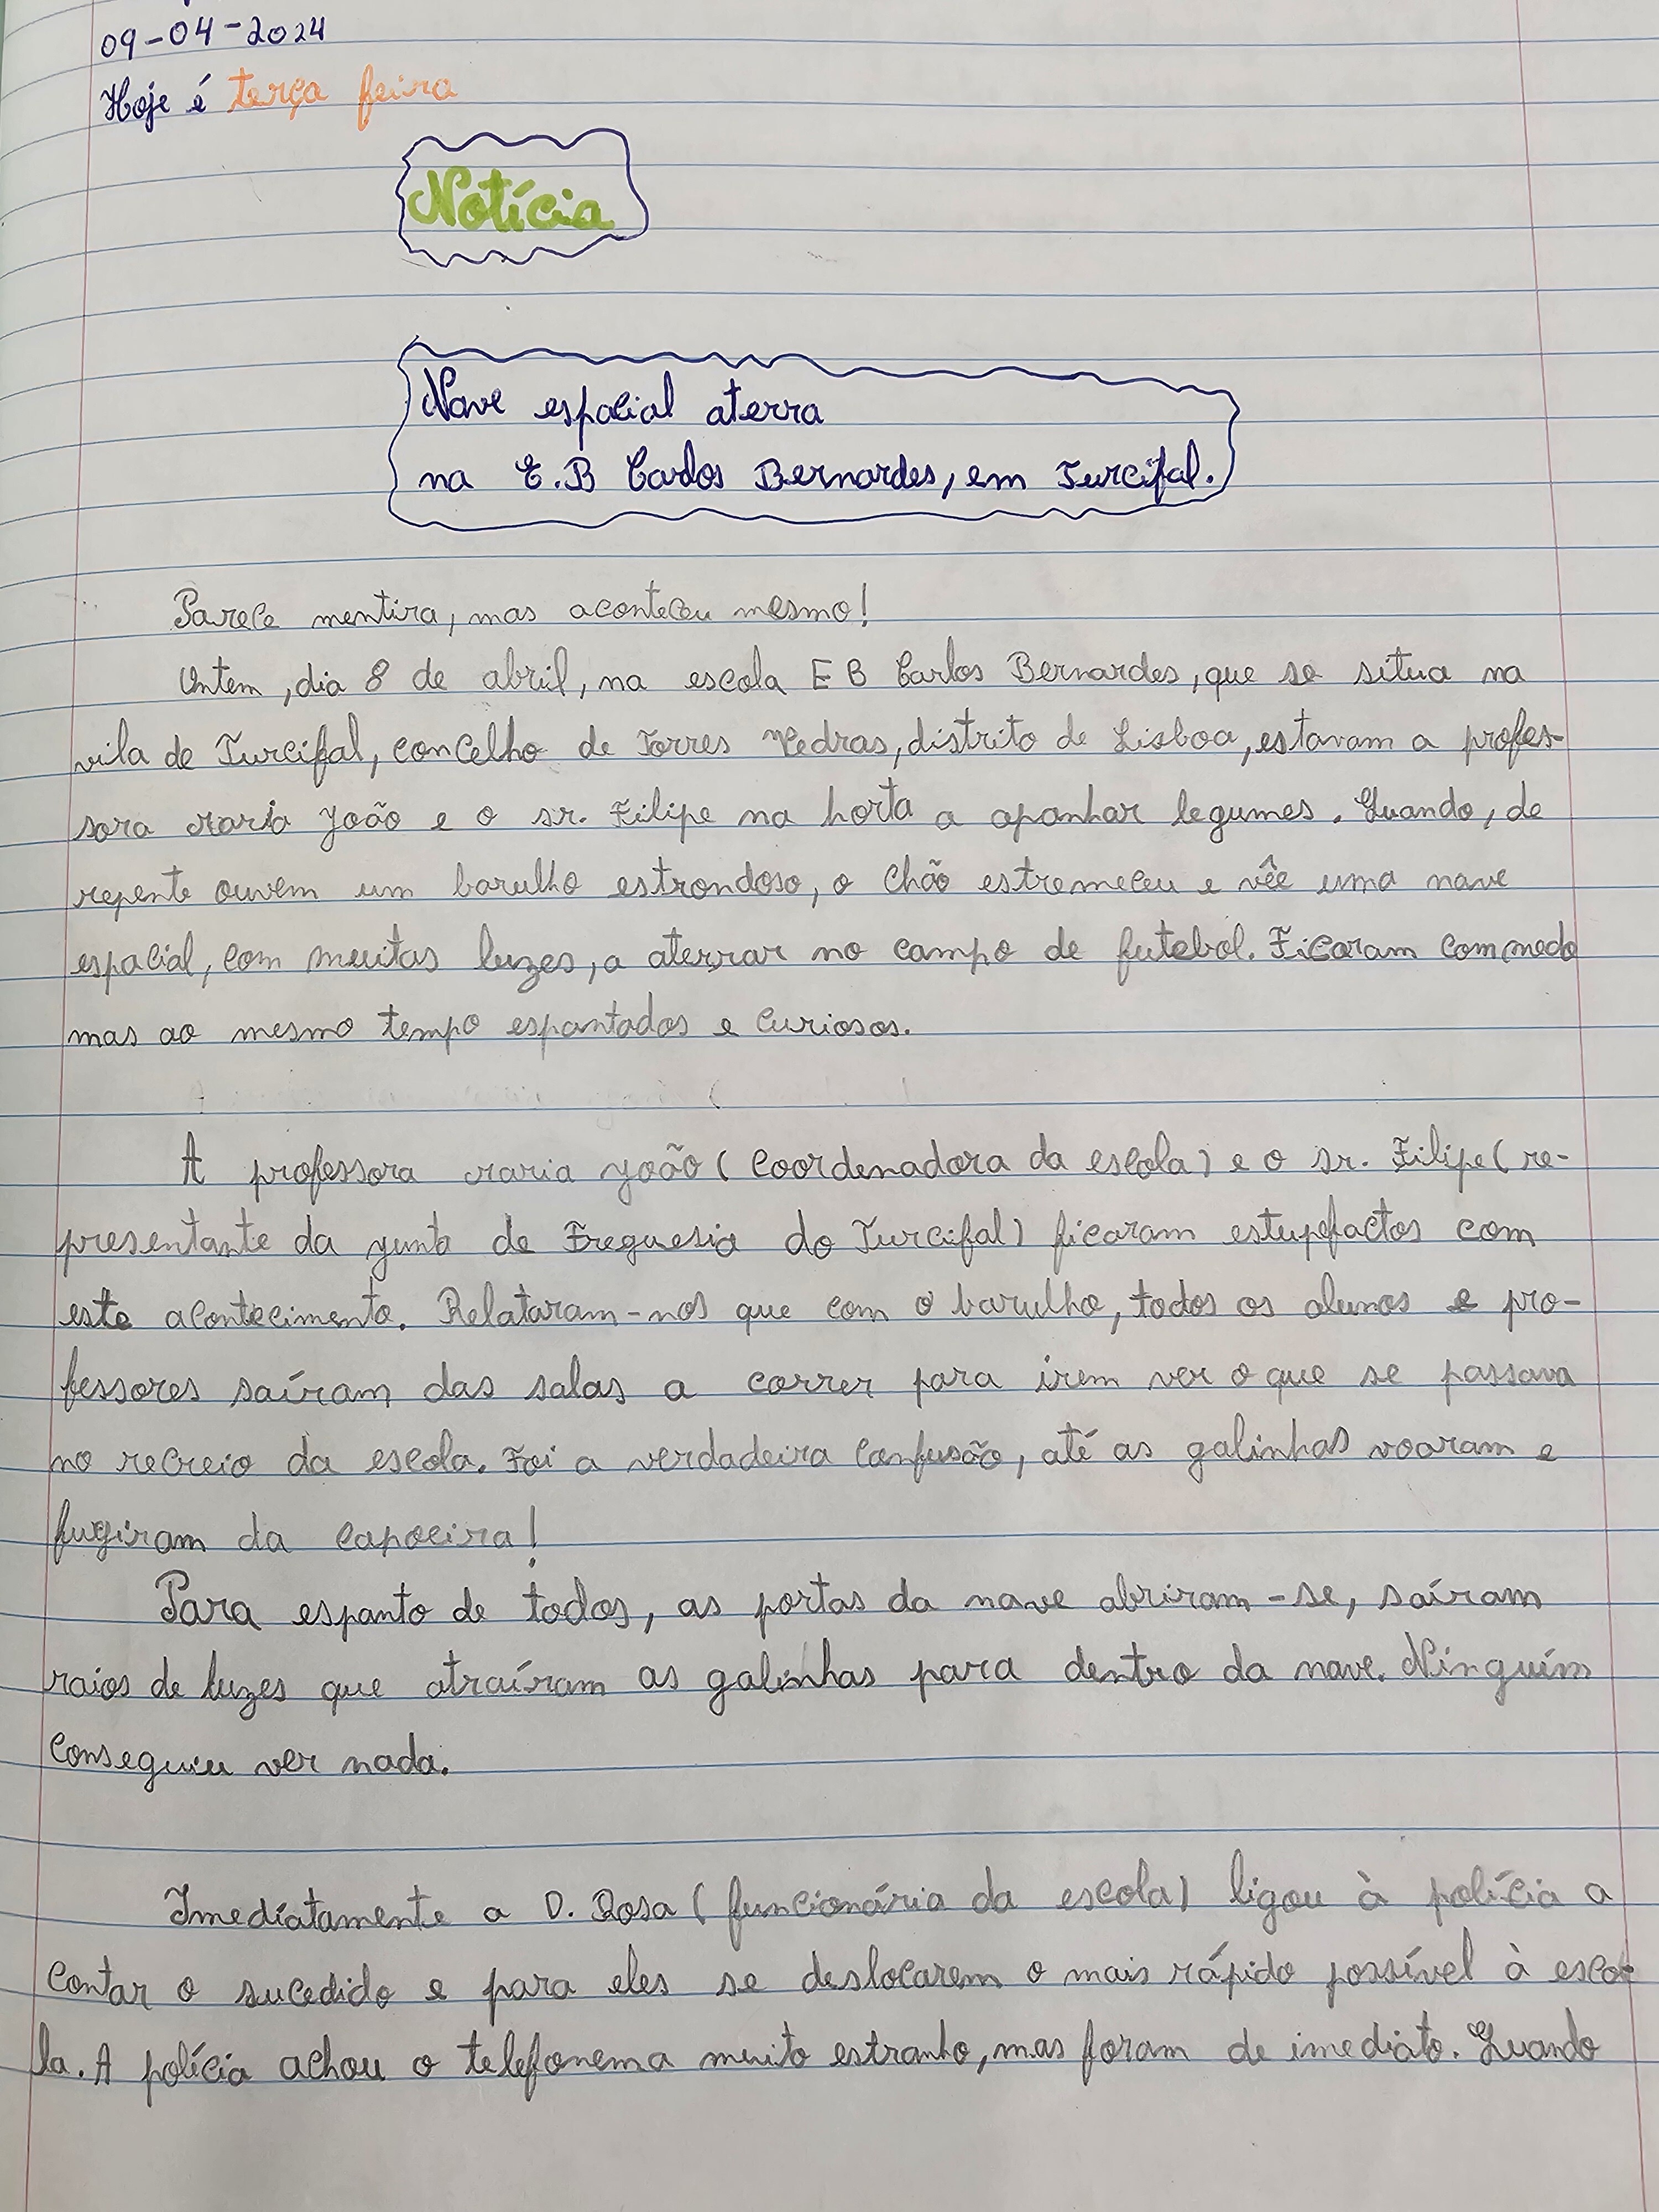 09-04-2024
Hoje é terça feira
Notícia
Nave espacial aterra
na E.B Carlos Bernardes, em Turcifal.
Parece mentira, mas aconteceu mesmo!
Ontem, dia 8 de abril, na escola E B Carlos Bernardes, que se situa na
vila de Turcifal, concelho de Torres Vedras, distrito de Lisboa, estavam a profes-
sora Maria João e o sr. Filipe na horta a apanhar legumes. Quando, de
repente ouvem um barulho estrondoso, o chão estremeceu e vêe uma nave
espacial, com muitas luzes, a aterrar no campo de futebol. Ficaram com medo
mas ao mesmo tempo espantados e curiosos.
A professora Maria João (Coordenadora da escola) e o sr. Filipe (re-
presentante da junta de Freguesia do Turcifal) ficaram estupefactos com
este acontecimento. Relataram-nos que com o barulho, todos os alunos e pro-
fessores saíram das salas a correr para irem ver o que se passava
no recreio da escola. Foi a verdadeira confusão, até as galinhas voaram e
fugiram da capoeira!
Para espanto de todos, as portas da nave abriram-se, saíram
raios de luzes que atraíram as galinhas para dentro da nave. Ninguém
conseguiu ver nada.
Imediatamente a D. Rosa (funcionária da escola) ligou à polícia a
contar o sucedido e para eles se deslocarem o mais rápido possível à esco-
la. A polícia achou o telefonema muito estranho, mas foram de imediato. Quando